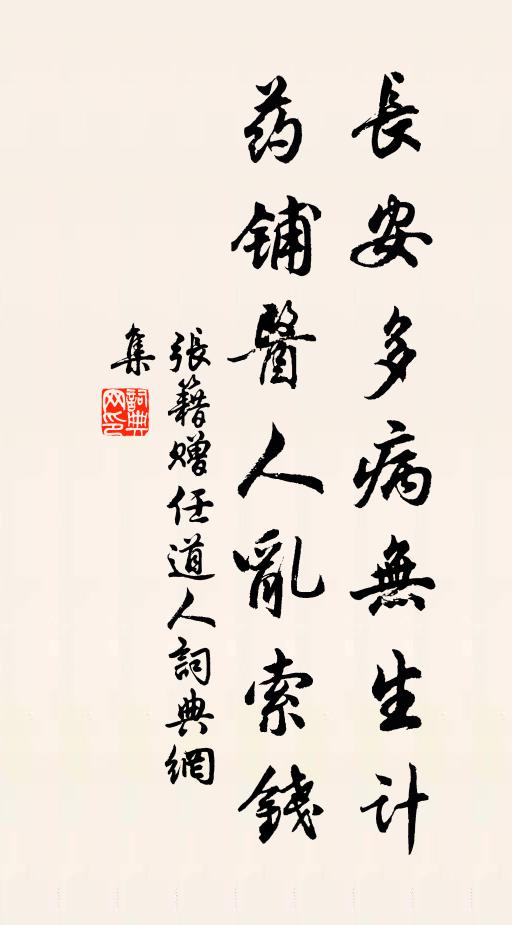 長安多病無生計
药铺醫人亂索錢
張籍贈任道人詞典網
集
詞典
网印